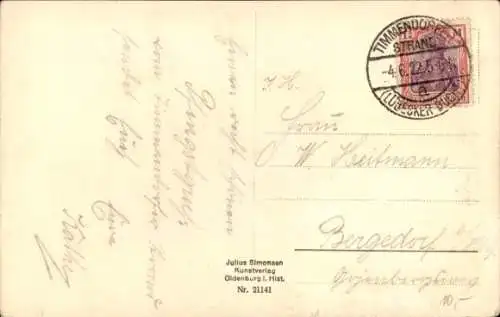 Einen recht schönen
Pfingstgruß
vom Timmendorfer Strand
sendet Euch
Eure
Käthe
TIMMENDORFER
STRAND
-4.6.22.5-6
a
(LÜBECKER BUCHT)
Frau
W Heitmann
Bergedorf
Julius Simonsen
Kunstverlag
Oldenburg i. Hlst.
Nr. 21141
10,-